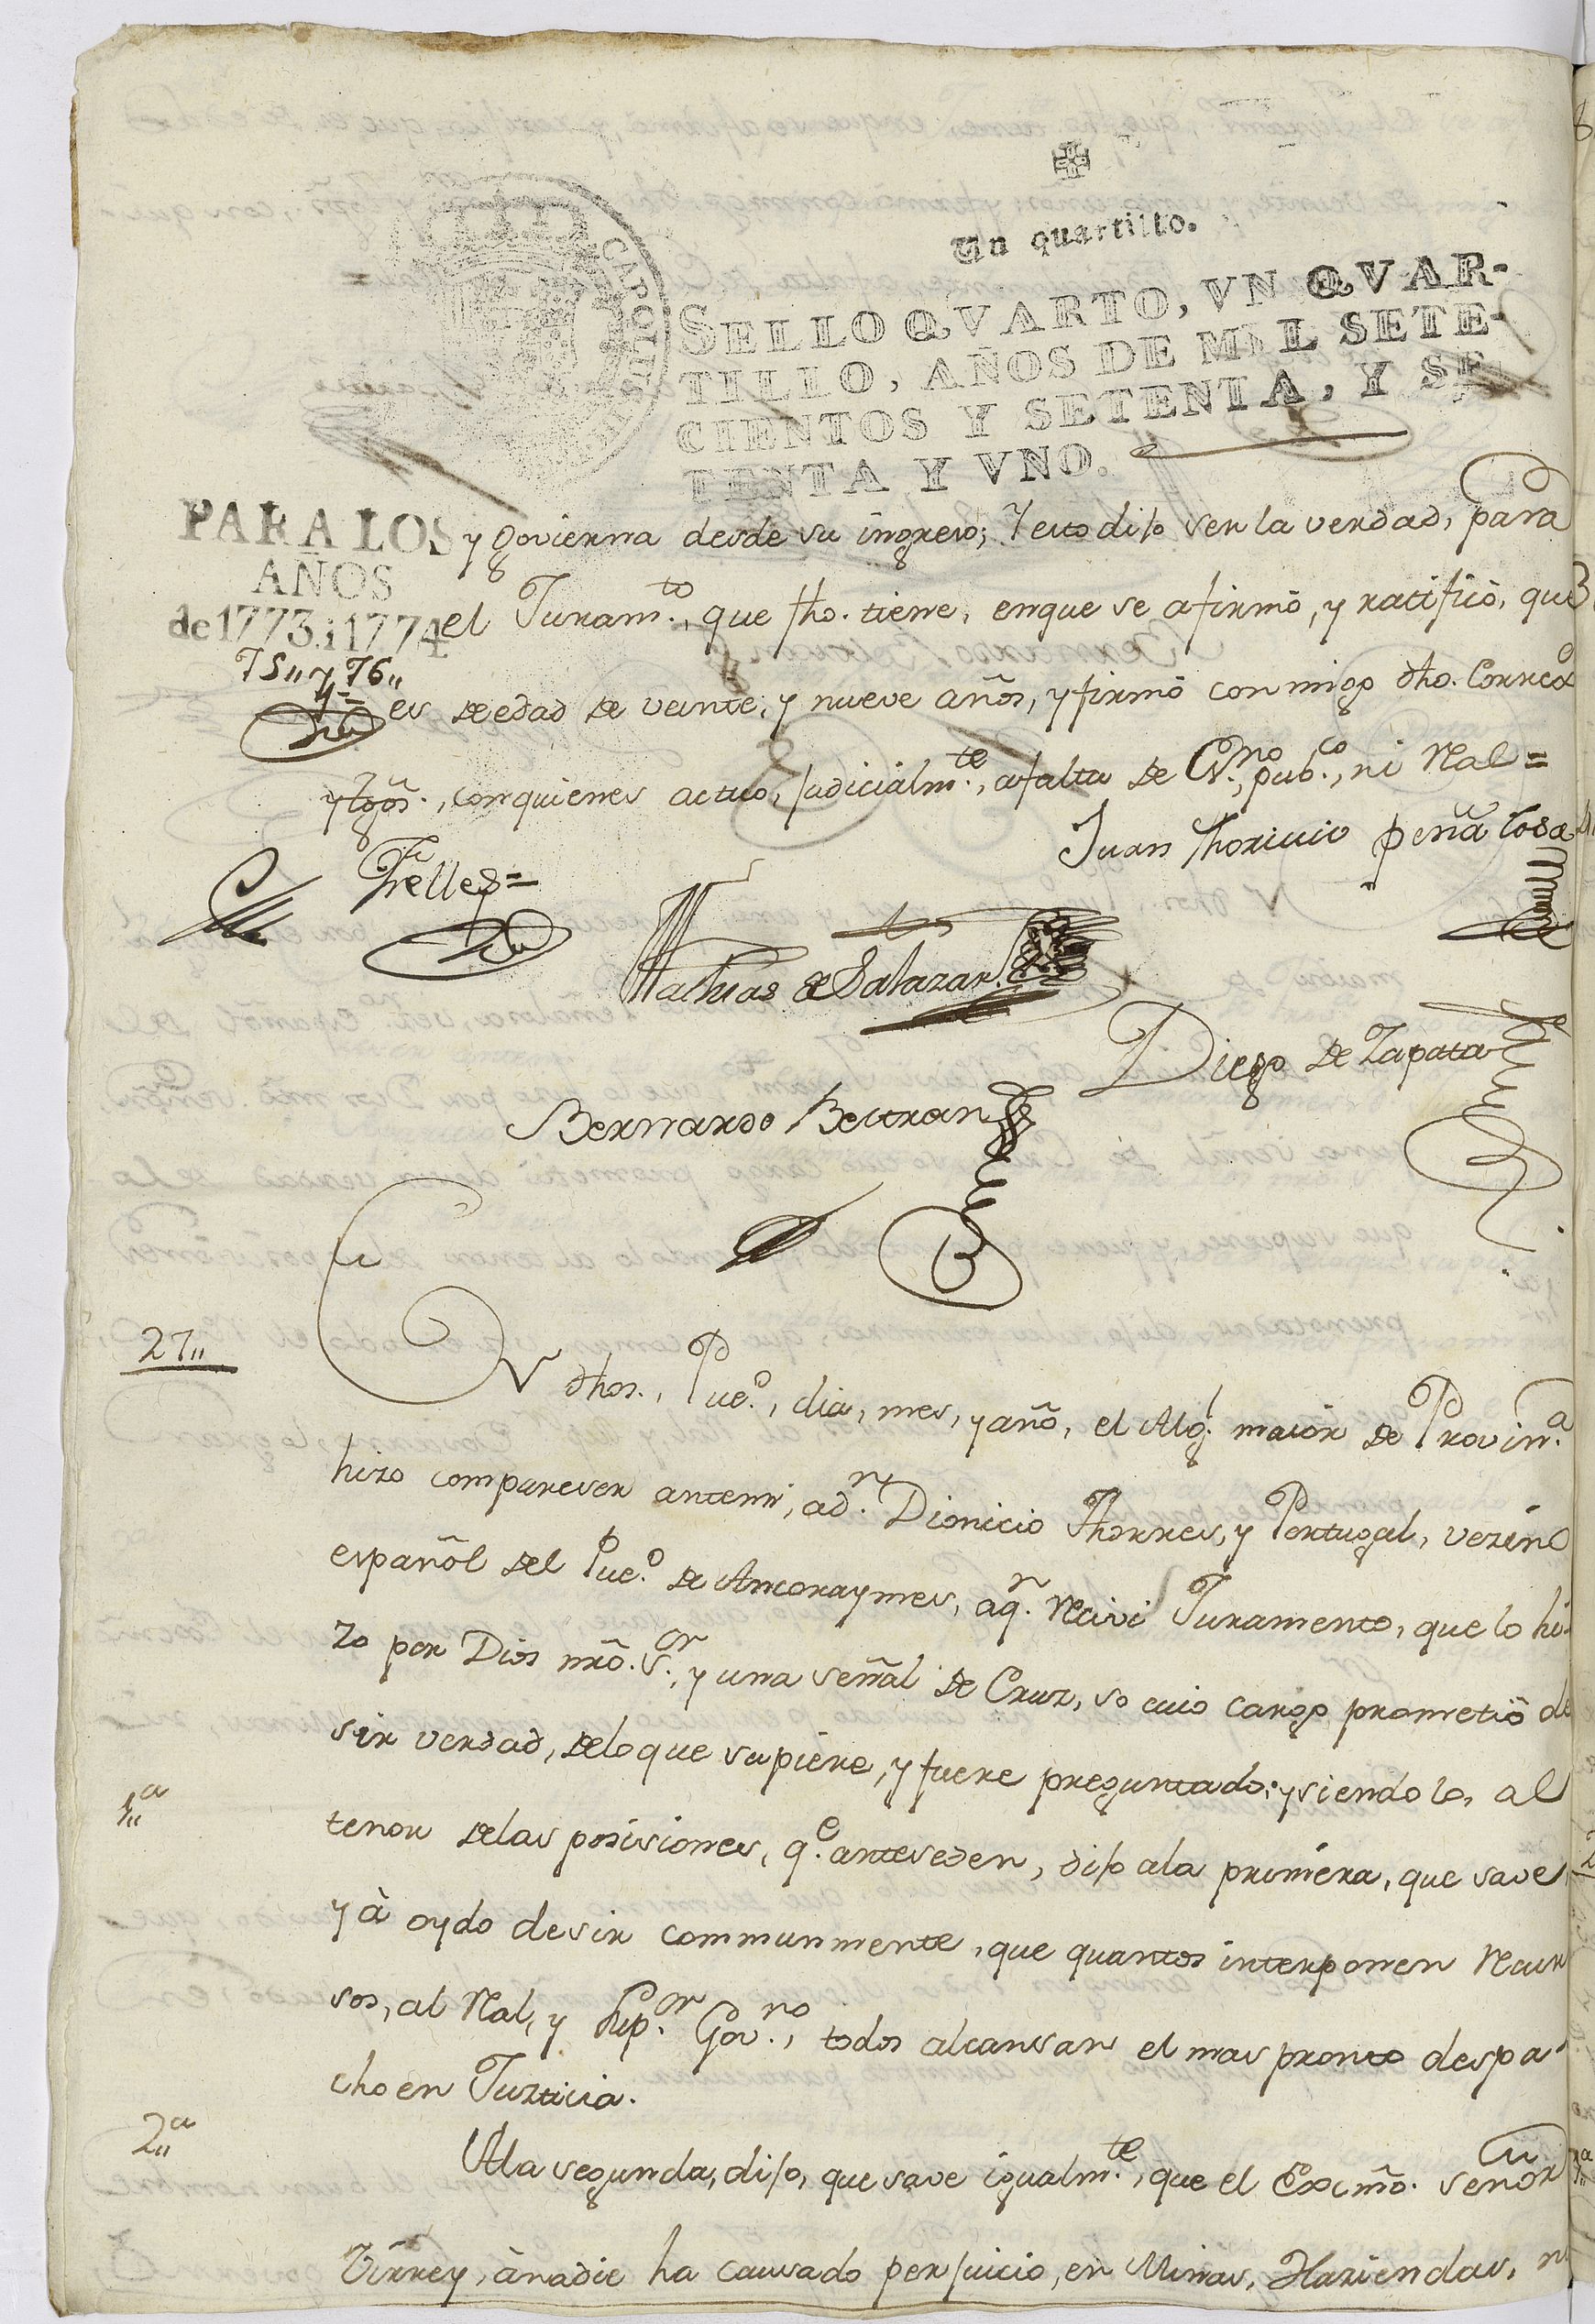 Un quartillo.
SELLO QVARTO, VN QVAR-
TILLO, AÑOS DE MIL SETE-
CIENTOS Y SETENTA, Y SE-
TENTA Y VNO.
PARA LOS
AÑOS
de 1773. i 1774
75,, y 76,,
y govierna desde su ingreso; Y esto dijo ser la verdad, para
el Juram.to, que fho. tiene, en que se afirmó, y ratificó, que
es de edad de veinte, y nueve años, y firmó con migo dho. Correx.or
y tgos., con quienes actuo, judicialm.te, a falta de Es.no pub.co, ni Real =
Juan Thoriuio peñalosa
Trelles =
Mathias de Salazar
Diego de Zapata
Bernardo Beltran
27,,
EN dhos., Pue.o, dia, mes, y año, el Alg.l maior de Provin.a
hizo compareser ante mi, a d.n Dionicio Thorres, y Portugal, vezino
español del Pue.o de Ancoraymes, a q.n Reciví Juramento, que lo hi-
zo por Dios nrõ. S.or, y una señal de Cruz, so cuio cargo prometió de
sir verdad, de lo que supiere, y fuere preguntado: y siendo lo, al
1,,a
tenor de las posisiones, q.e anteseden, dijo a la primera, que save
y à oydo desir communmente, que quantos interponen Recur
sos, al Real, y Sup.or Gov.no, todos alcansan el mas pronto despa-
cho en Justicia.
2,,a
A la segunda, dijo, que save igualm.te, que el Excmõ. señor
Virrey, à nadie ha causado perjuicio, en Minas, Haziendas, ni